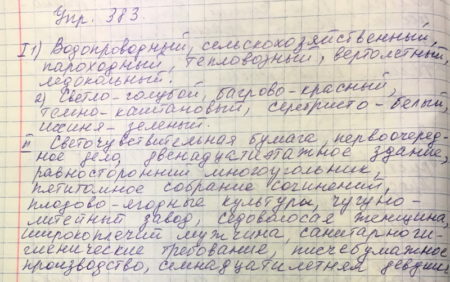 Упр. 383.
I 1) Водопроводный, сельскохозяйственный,
пароходный, тепловозный, вертолётный,
ледокольный.
2) Светло-голубой, багрово-красный,
темно-каштановый, серебристо-белый,
иссиня-зеленый.
II Светочувствительная бумага, первоочеред-
ное дело, двенадцатиэтажное здание,
равносторонний многоугольник,
пятитомное собрание сочинений,
плодово-ягодные культуры, чугуно-
литейный завод, седовласая женщина,
широкоплечий мужчина, санитарно-ги-
гиенические требование, писчебумажное
производство, семнадцатилетняя девушка